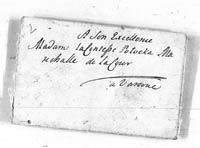 A Son Excellence
Madam la Contesse Potocka Ma
rechalle de la Cour
a Varsovie